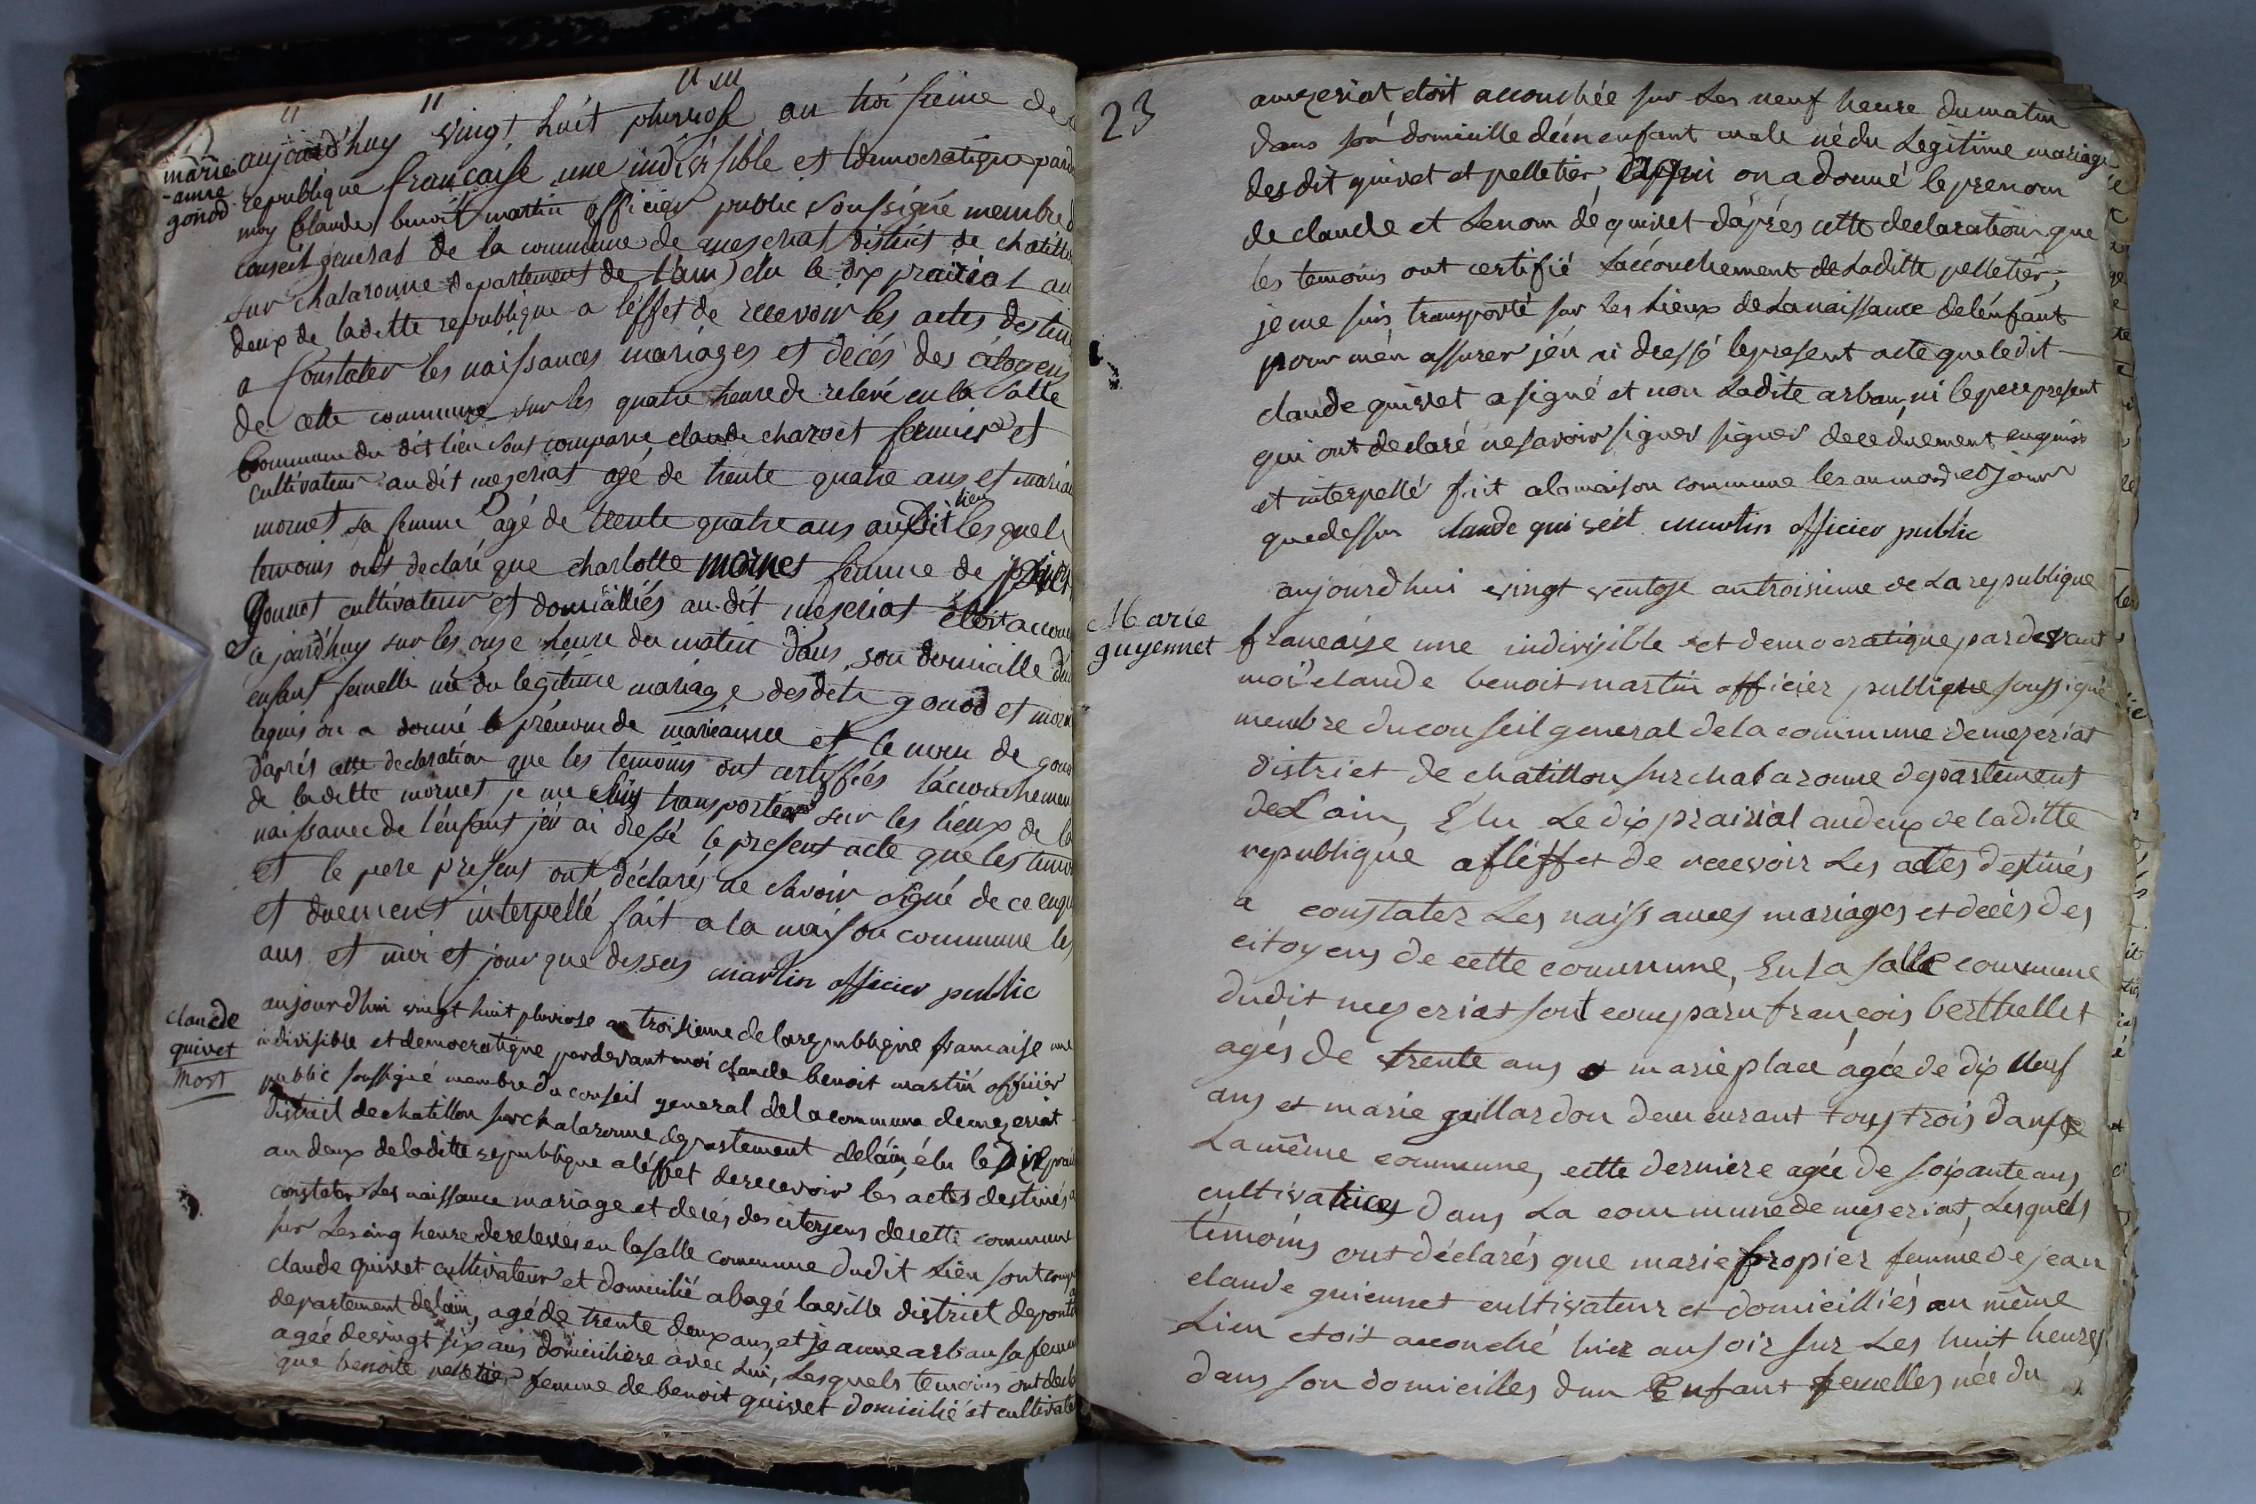 marie
-anne
gonod
aujourd'huy vingt huit pluviose an troisieme de
republique francaise une indivisible et democratique pard
moy Claude benoit martin officier public soussigné membre d
conseil general de la commune de mezeriat district de chatillon
sur chalaronne departement de l'ain élu le dix prairial an
deux de laditte republique a l'éffet de recevoir les actes destin
a Constater les naissances mariages et décés des citoyens
de cette commune sur les quatre heure de relevé en la Salle
Commune du dit lieu sont comparu, claude charvet fermier et
cultivateur audit mezeriat agé de trente quatre ans et maria
mornet sa femme agé de trente quatre ans audit lieu lesquels
temoins ont declaré que charlotte mornet femme de
gonnot cultivateur et domiciliés au-dit mezeriat étoit accou
ce jourd'huy sur les onze heure du matin dans son domicille du
enfant femelle né du legitime mariage desdits gonod et morn
laquis on a donné le prénom de marieanne et le nom de gono
d'aprés cette declaration que les temoins ont certiffiés l'accouchemen
de laditte mornet je me suis transporter sur les lieux de la
naissance de l'enfant j'en ai dressé le present acte que les temoi
et le pere present ont déclarés ne savoir signé de ce enqu
et duement interpellé fait a la maison commune les
ans et moi et jour que dessus martin officier public
claude
quivet
mort
aujourdhui vingt huit pluviose an troisieme de la republique francaise une
indivisible et democratique pardevant moi claude benoit martin officier
public soussigné membre du conseil general de la commune de mezeriat
district de chatillon sur chalaronne departement de lain, élu le dix prai
an deux de laditte republique a léffet de recevoir les actes destinés a
constater les naissance mariage et décés des citoyens de cette commune
sur les cinq heure de relevés en la salle commune dudit lieu sont comp
claude quivet cultivateur et domicilié a bagé la ville district de pont
departement de lain, agé de trente deux ans, et jeanne arban sa femme
agée de vingt six ans domiciliere avec lui, lesquels temoins ont decla
que benoite pelletier femme de benoit quivet domicilié et cultivate
23
amezeriat etoit accouchée sur les neuf heure du matin
dans son domicille déun enfant male né du legitime mariage
des dit quivet et pelletier, aqui on a donné le prenom
de claude et le nom de quivet d'aprés cette declaration que
les temoins ont certifié l'accouchement de laditte pelletier,
je me suis transporté sur les lieux de la naissance de lénfant
pour mén assurer jén ai dressé le present acte que le dit
claude quivet a signé et non ladite arban, ni le pere present
qui ont declaré ne savoir signer signer de ce duement enquis
et interpellé fait a la maison commune les an mois et jour
que dessus claude quiveit martin officier public
Marie
guyennet
aujourdhui vingt ventose an troisieme de la republique
francaise une indivisible et democratique par devant
moi claude benoit martin officier publique soussigné
membre du conseil general de la commune de mezeriat
district de chatillon sur chalaronne departement
de Lain, Élu le dix prairial an deux de laditte
republique a l'éffet de recevoir les actes destinés
a constater les naissances mariages et décès des
citoyens de cette commune, En la salle commune
dudit mezeriat sont comparu françois berthellet
agés de trente ans et marie place agée de dix neuf
ans et marie gaillardon demeurant tous trois dans
la même commune, cette derniere agée de soixante ans,
cultivatrices dans la commune de mezeriat, lesquels
témoins ont déclarés que marie fropier femme de jean
claude guiennet cultivateur et domicilliés au même
lieu etoit accouché hier au soir sur les huit heures
dans son domicilles dun Enfant femelles née du